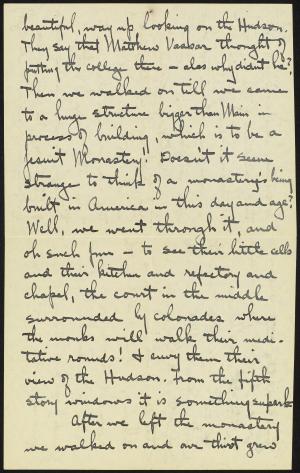 beautiful, way up looking on the Hudson.
They say that Matthew Vassar thought of
putting the college there – alas why didnt he?
Then we walked on till we came
to a huge structure bigger than Main in
process of building, which is to be a
Jesuit Monastery! Doesn't it seem
strange to think of a monastery's being
built in America in this day and age?
Well, we went through it, and
oh such fun – to see their little cells
and their kitchen and refectory and
chapel, the court in the middle
surrounded by colonades where
the monks will walk their medi-
tative rounds! I envy them their
view of the Hudson. From the fifth
story windows it is something superb.
After we left the monastery
we walked on and our thirst grew